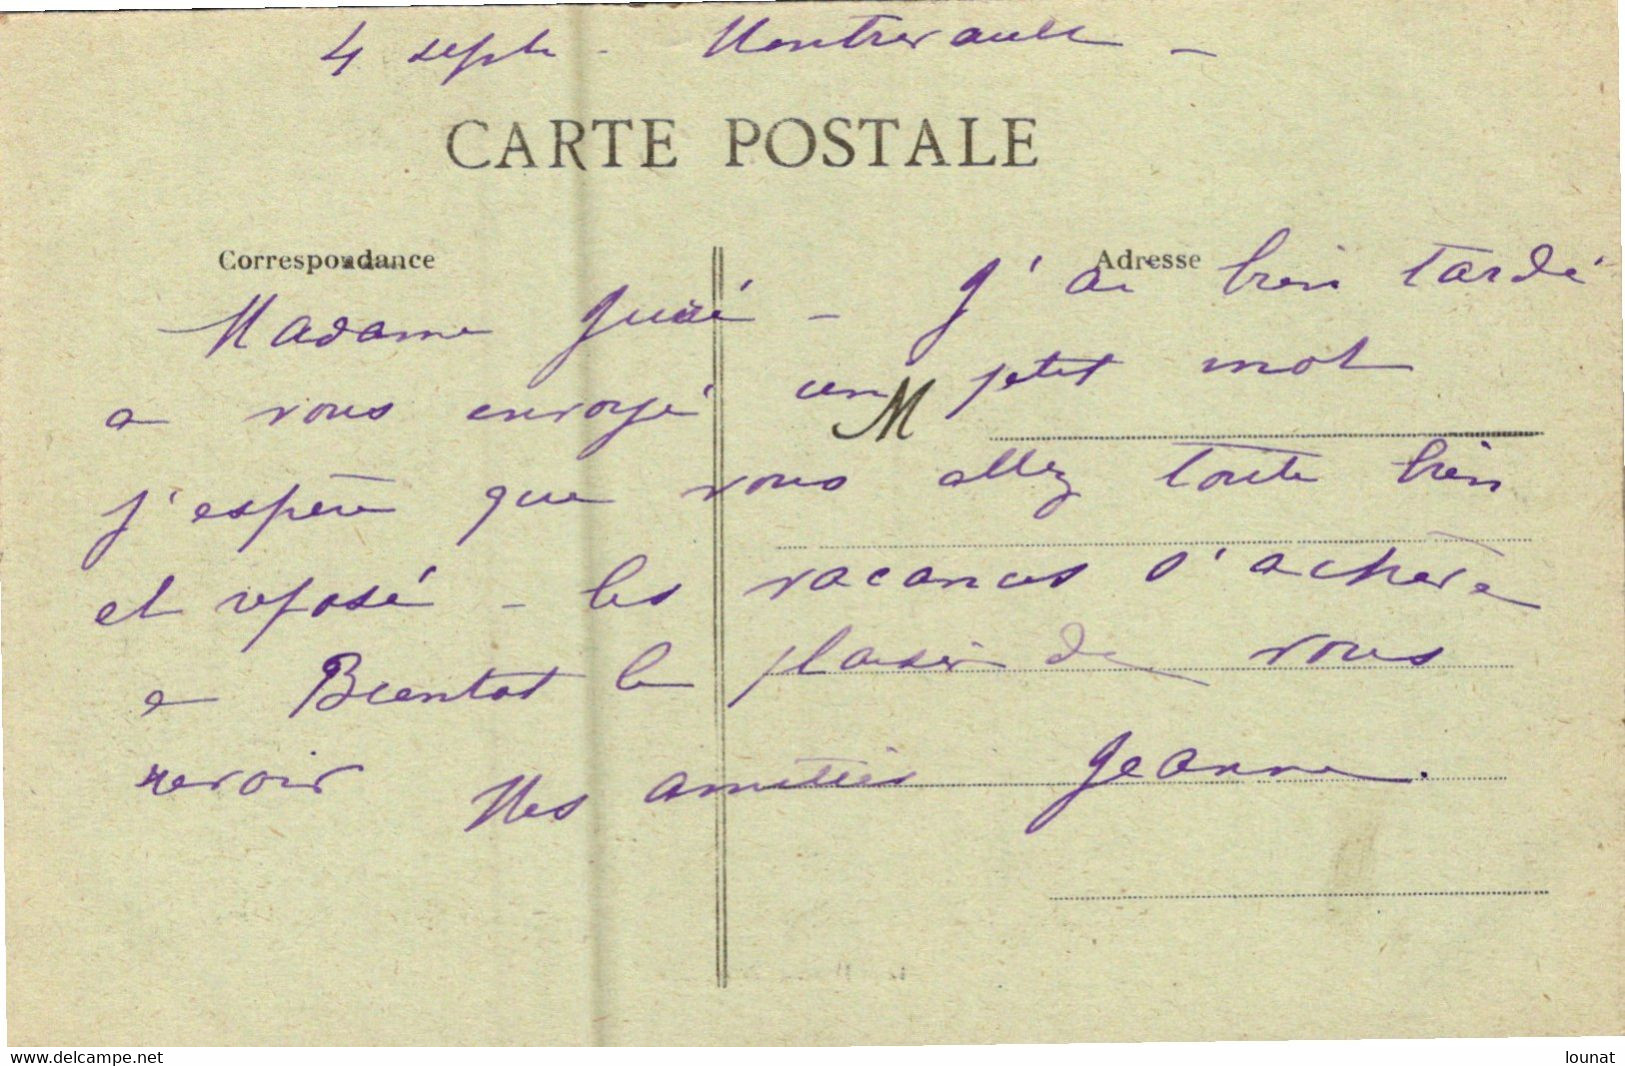 4 septe - Montrevault -
CARTE POSTALE
Correspondance
Adresse
Madame - J'ai bien tardé
a vous envoyé un petit mot
M
j'espère que vous allez toute bien
et reposé - les vacances s'achève
a Bientot le plaisir de vous
revoir Mes amitiés Jeanne.
www.delcampe.net
lounat